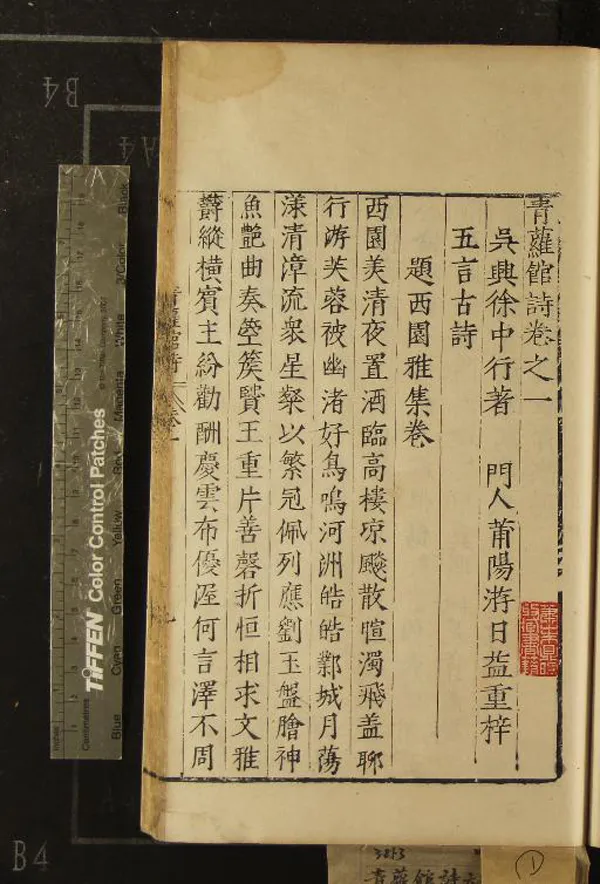 青蘿館詩卷之一
吳興徐中行著 門人莆陽游日益重梓
五言古詩
題西園雅集卷
西園美清夜置酒臨高樓凉飈散喧濁飛盖聊
行游芙蓉被幽渚好鳥鳴河洲皓皓鄴城月蕩
漾清漳流衆星粲以繁冠佩列應劉玉盤膾神
魚艷曲奏箜篌賢王重片善磬折恒相求文雅
欝縱橫賓主紛勸酬慶雲布優渥何言澤不周
青蘿館詩 卷一
B4
A4
B4
TIFFEN Color Control Patches
Inches
Centimetres
Blue
Cyan
Green
Yellow
Red
Magenta
White
3/Color
Black
3813
青蘿館詩六
1